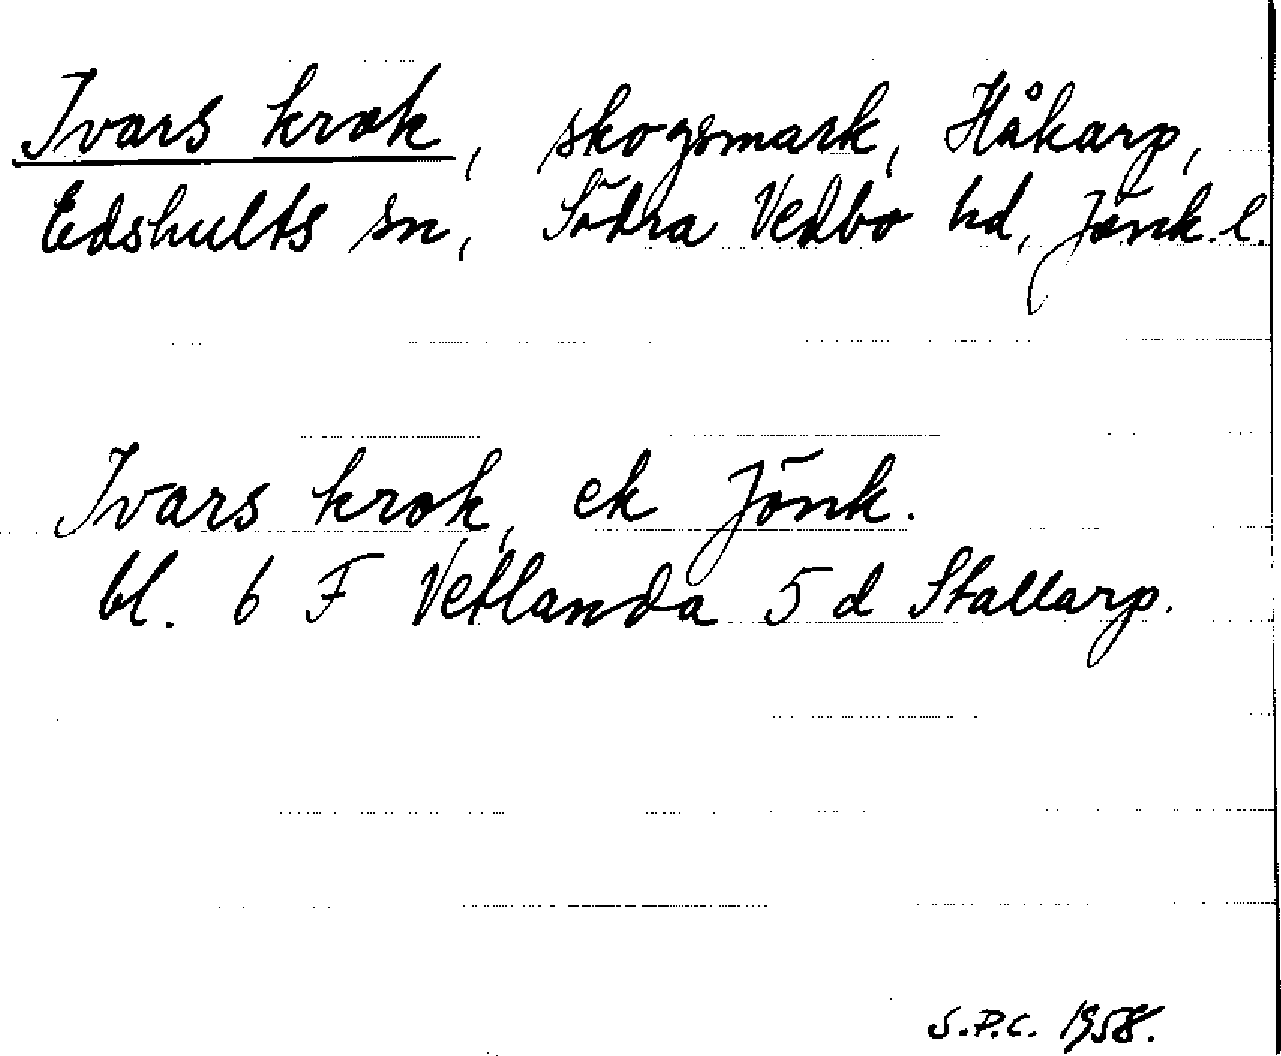 Ivars krok, skogsmark, Håkarp,
Edshults sn, Södra Vedbo hd, Jönk. l.
Ivars krok, ek Jönk.
bl. 6 F Vetlanda 5 d Stallarp.
S.P.C. 1958.